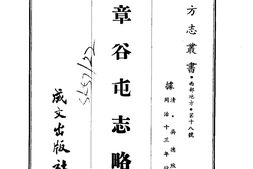 方志叢書·西部地方·第十八號
據清·吳德煦
同治十三年
章谷屯志略
成文出版社